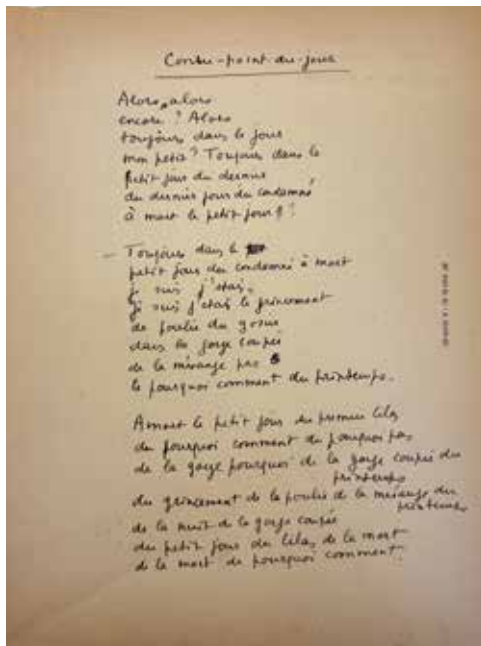 Contre-point-du-jour
Alors, alors
encore ? Alors
toujours dans le jour
mon petit ? Toujours dans le
petit jour du dernier
du dernier jour du condamné
à mort le petit jour ?
Toujours dans le
petit jour du condamné à mort
je suis j'étais.
je suis j'étais le grincement
de poulie du gosier
dans la gorge coupée
de la mésange pas
le pourquoi comment du printemps.
Avant le petit jour du premier lilas
du pourquoi comment du pourquoi pas
de la gorge pourquoi de la gorge coupée du
printemps
du grincement de la poulie de la mésange du
printemps
de la nuit de la gorge coupée
du petit jour du lilas de la mort
de la mort du pourquoi comment.